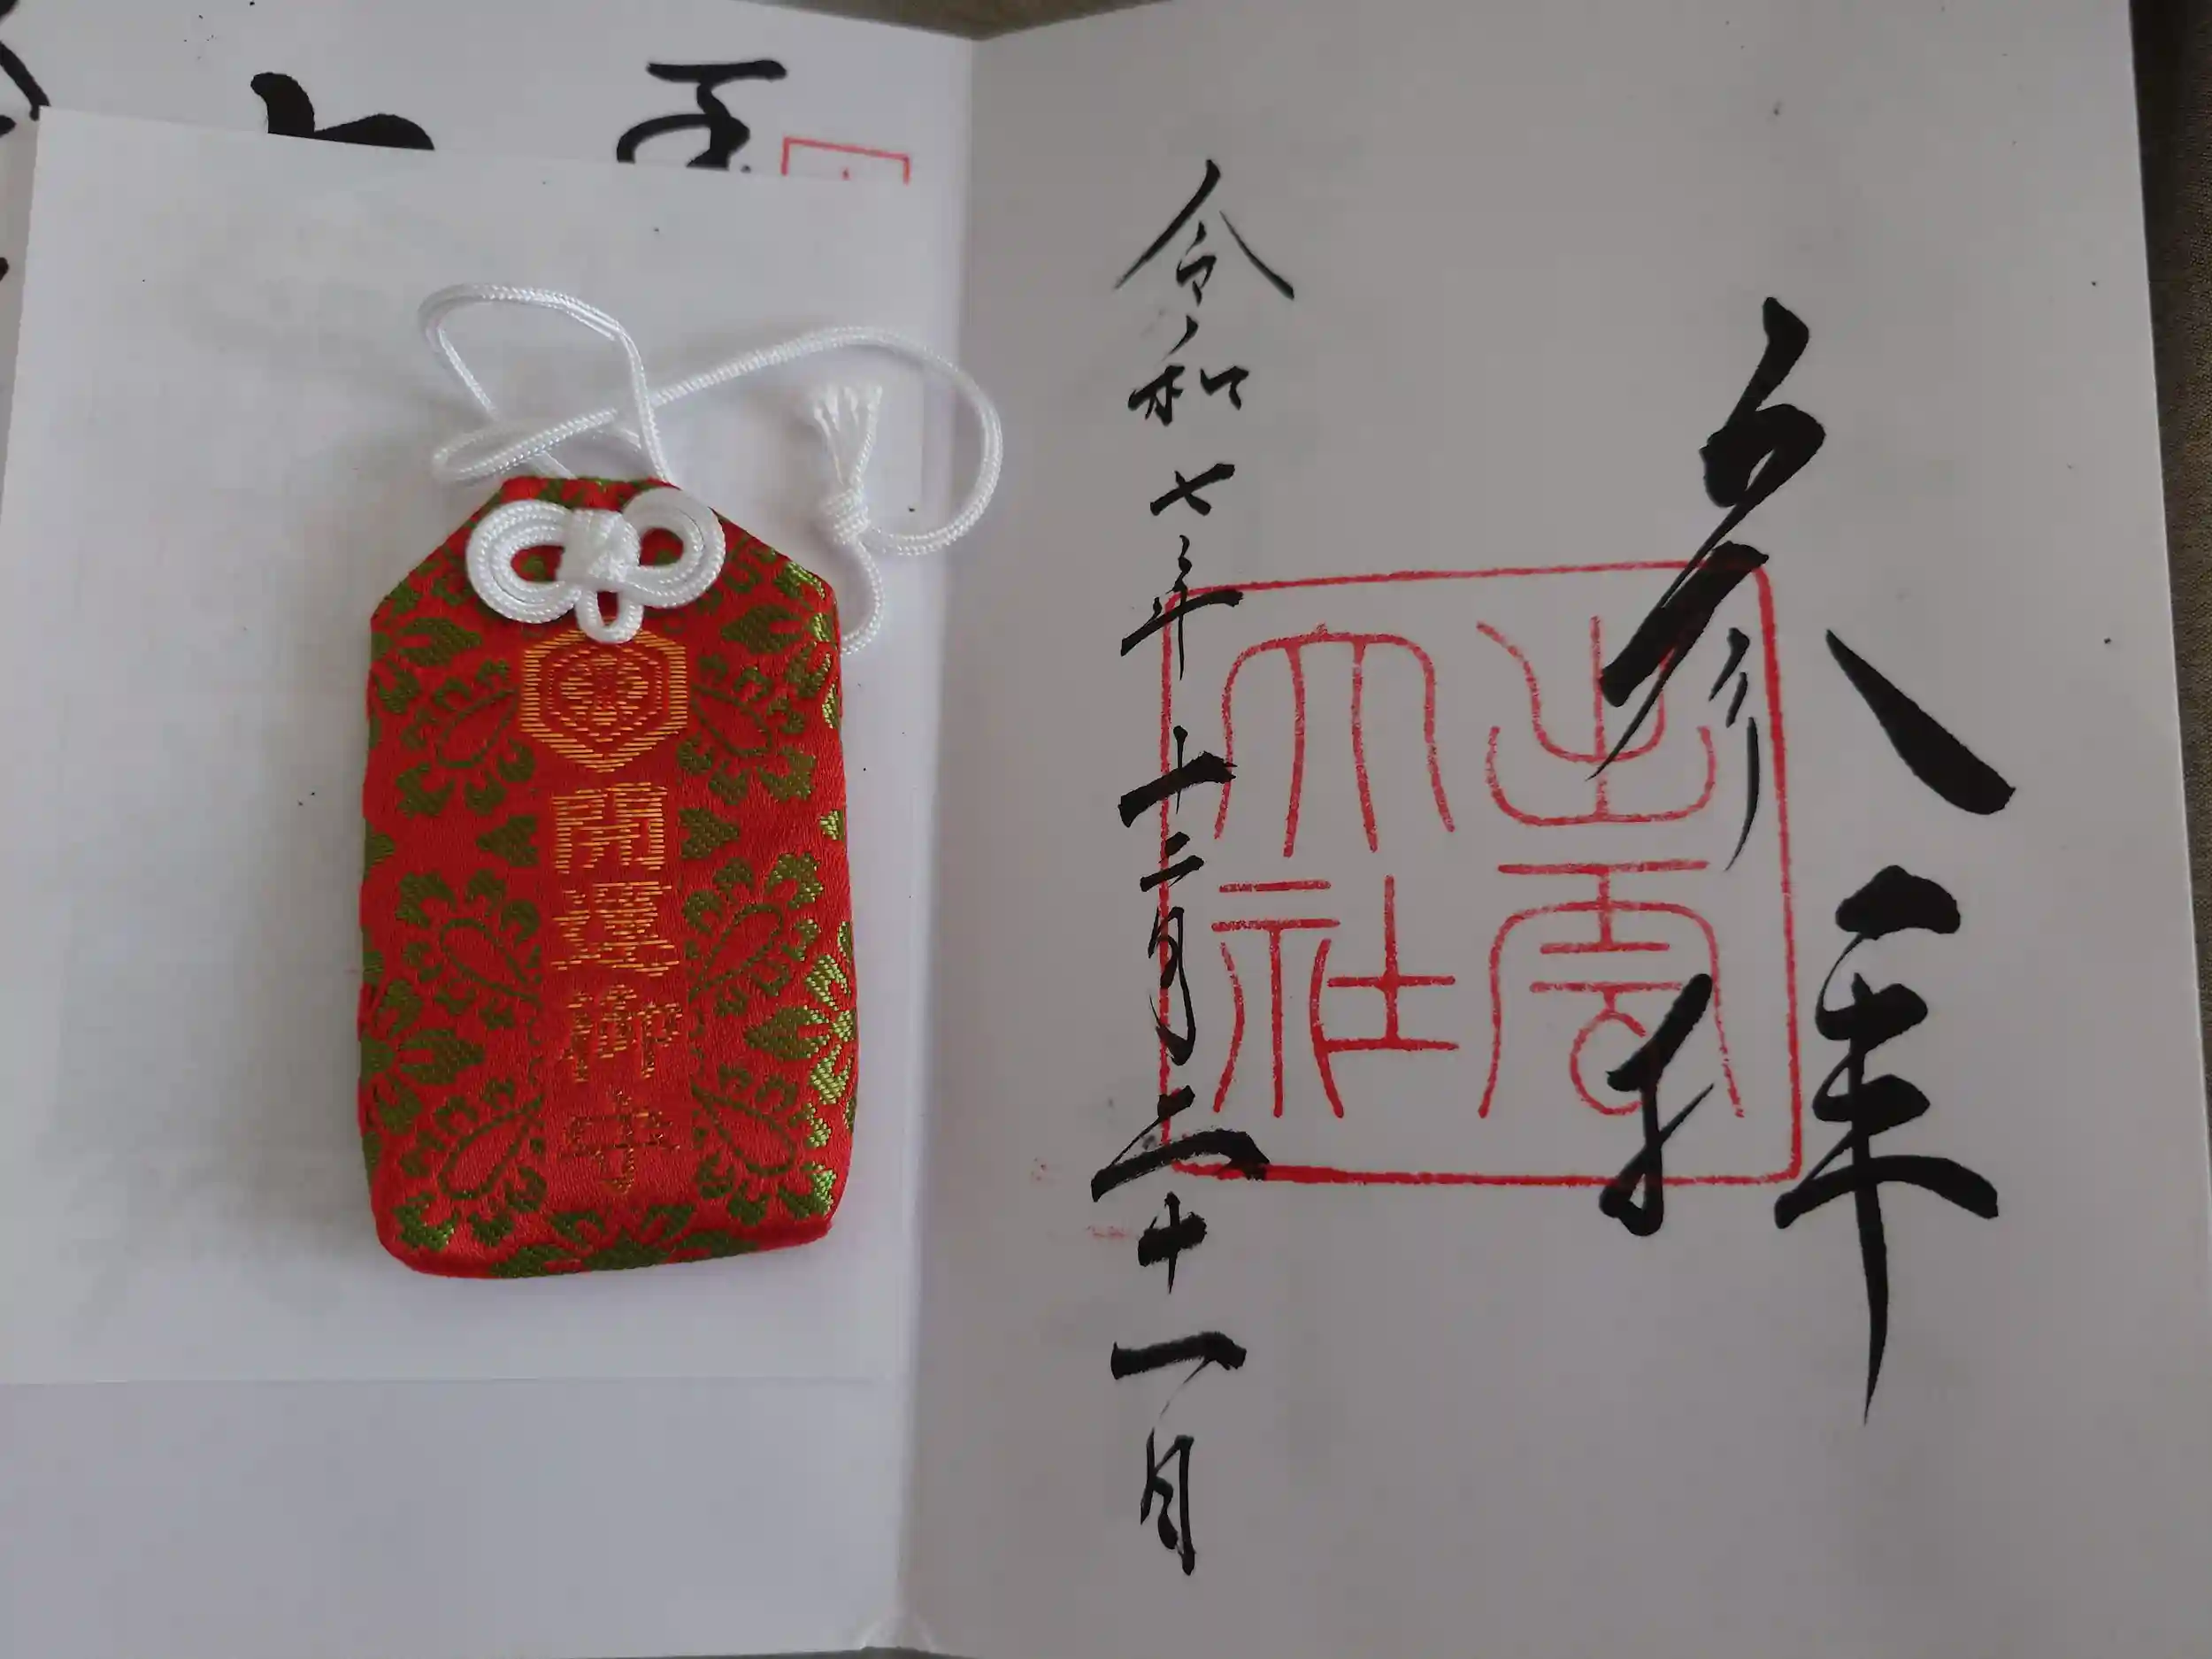 参拝
出雲
大社
令和七年十二月二十一日
開運御守